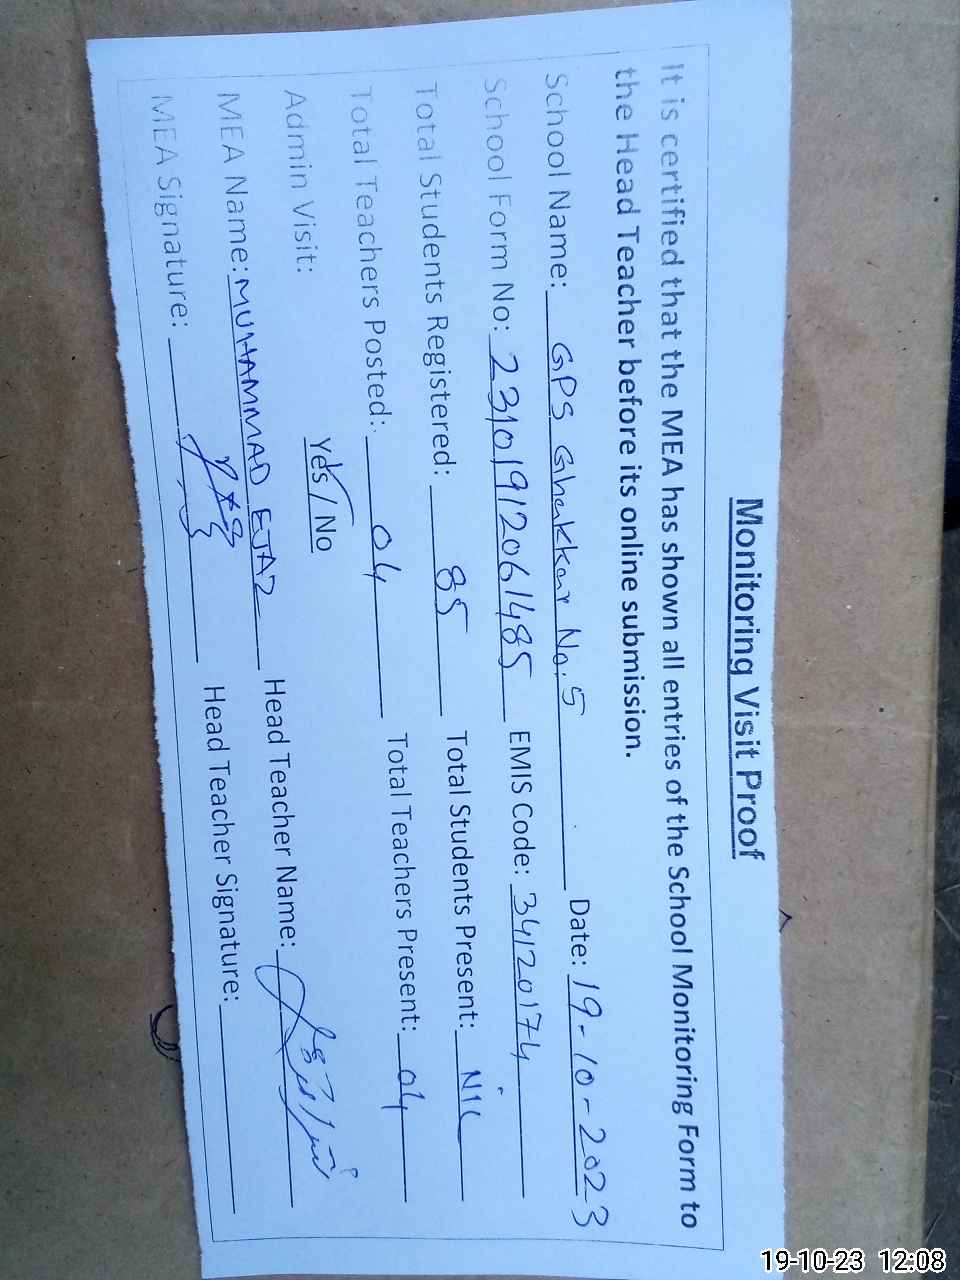 Monitoring Visit Proof
It is certified that the MEA has shown all entries of the School Monitoring Form to
the Head Teacher before its online submission.
School Name: GPS Ghakkar No.5 Date: 19-10-2023
School Form No: 23101912061485 EMIS Code: 34120174
Total Students Registered: 85 Total Students Present: Nil
Total Teachers Posted: 04 Total Teachers Present: 04
Admin Visit: Yes / No
MEA Name: MUHAMMAD EJAZ Head Teacher Name:
MEA Signature: Head Teacher Signature:
19-10-23 12:08